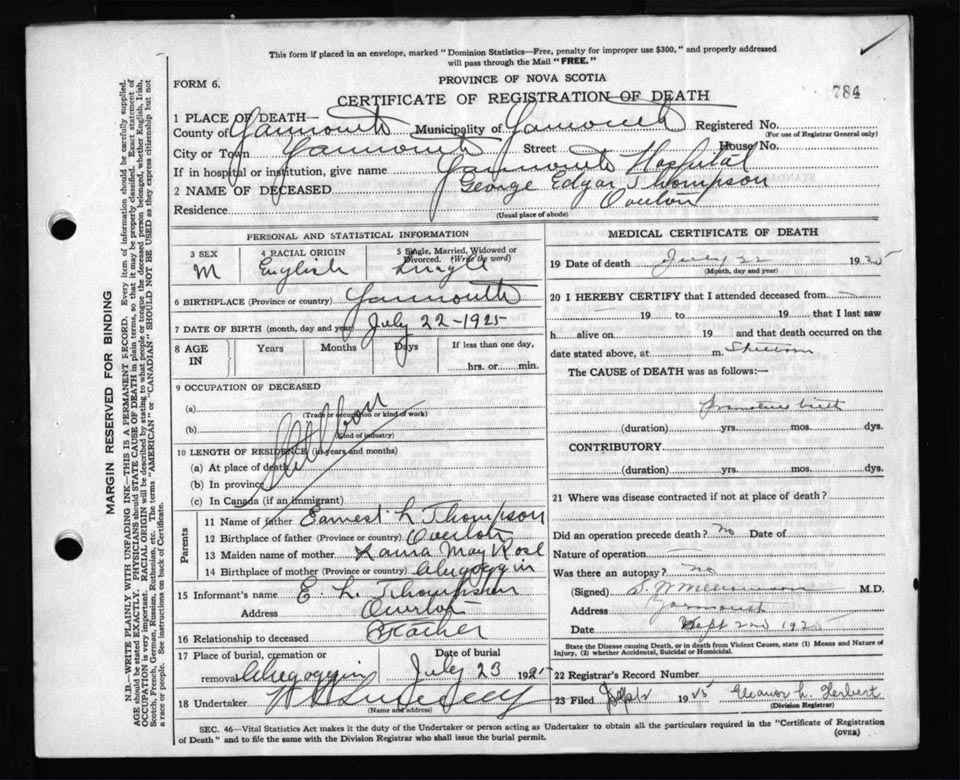 This form if placed in an envelope, marked "Dominion Statistics—Free, penalty for improper use $300," and properly addressed
will pass through the Mail "FREE."
FORM 6.
PROVINCE OF NOVA SCOTIA
784
CERTIFICATE OF REGISTRATION OF DEATH
1 PLACE OF DEATH—
County of Yarmouth Municipality of Yarmouth Registered No.
(For use of Registrar General only)
City or Town Yarmouth Street House No.
If in hospital or institution, give name Yarmouth Hospital
2 NAME OF DECEASED George Edgar Thompson
Residence Overton
(Usual place of abode)
PERSONAL AND STATISTICAL INFORMATION
3 SEX 4 RACIAL ORIGIN 5 Single, Married, Widowed or Divorced. (Write the word)
M English Single
6 BIRTHPLACE (Province or country) Yarmouth
7 DATE OF BIRTH (month, day and year) July 22-1925
8 AGE IN Years Months Days If less than one day,
hrs. or min.
9 OCCUPATION OF DECEASED
(a)
(Trade or occupation or kind of work)
(b)
(Kind of industry)
Stillborn
10 LENGTH OF RESIDENCE (in years and months)
(a) At place of death
(b) In province
(c) In Canada (if an immigrant)
Parents
11 Name of father Earnest L Thompson
12 Birthplace of father (Province or country) Overton
13 Maiden name of mother May Rose
14 Birthplace of mother (Province or country) Chegoggin
15 Informant's name E. L. Thompson
Address Overton
16 Relationship to deceased Father
17 Place of burial, cremation or removal Chegoggin
Date of burial July 23 1925
18 Undertaker
(Name and address)
MEDICAL CERTIFICATE OF DEATH
19 Date of death July 22 1925
(Month, day and year)
20 I HEREBY CERTIFY that I attended deceased from
19 to 19 that I last saw
h alive on 19 and that death occurred on
date stated above, at m. Stillborn
The CAUSE of DEATH was as follows:—
Premature birth
(duration) yrs. mos. dys.
CONTRIBUTORY
(duration) yrs. mos. dys.
21 Where was disease contracted if not at place of death?
Did an operation precede death? No Date of
Nature of operation —
Was there an autopsy? No
(Signed) M.D.
Address Yarmouth
Date Sept 2nd 1925
State the Disease causing Death, or in death from Violent Causes, state (1) Means and Nature of
Injury, (2) whether Accidental, Suicidal or Homicidal.
22 Registrar's Record Number
23 Filed Sept 2 1925 Eleanor L. Herbert
(Division Registrar)
SEC. 46—Vital Statistics Act makes it the duty of the Undertaker or person acting as Undertaker to obtain all the particulars required in the "Certificate of Registration
of Death" and to file the same with the Division Registrar who shall issue the burial permit.
(OVER)
MARGIN RESERVED FOR BINDING
N.B.—WRITE PLAINLY WITH UNFADING INK—THIS IS A PERMANENT RECORD. Every item of information should be carefully supplied.
AGE should be stated EXACTLY. PHYSICIANS should STATE CAUSE OF DEATH in plain terms, so that it may be properly classified. Exact statement of
OCCUPATION is very important. RACIAL ORIGIN will be described by stating to what people or tongue the deceased person belonged, whether English, Irish,
Scotch, French, German, Russian, Ruthenian, etc. The terms "AMERICAN" or "CANADIAN" SHOULD NOT BE USED as they express citizenship but not
a race or people. See instructions on back of Certificate.